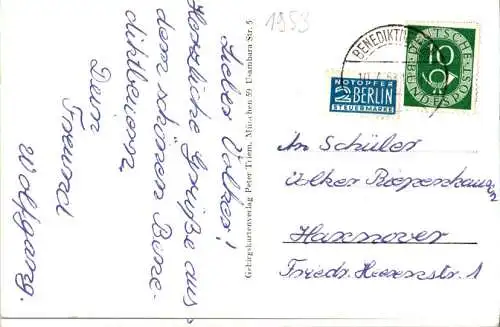 Lieber Volker!
Herzliche Grüße aus
dem schönen Bene-
diktbeiern
Dein
Freund
Wolfgang.
Gebirgskartenverlag Peter Triem, München 59 Usambara Str. 5
1953
BENEDIKT
NOTOPFER
2 BERLIN
STEUERMARKE
DEUTSCHE BUNDESPOST
10
An Schüler
Volker
Hannover
Friedr.